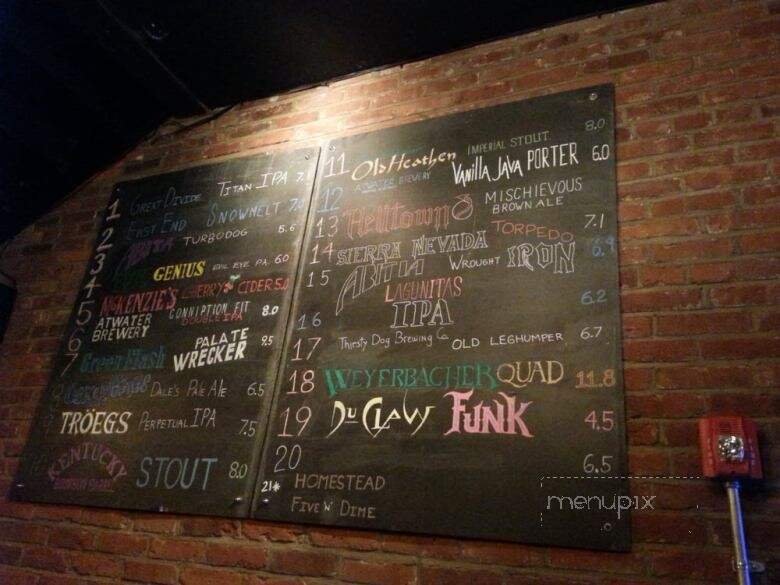 1 GREAT DIVIDE TITAN IPA 7.1
2 EAST END SNOWMELT 7.0
3 ABITA TURBODOG 5.6
4 GENIUS EVIL EYE P.A. 6.0
5 MCKENZIE'S CHERRY CIDER 5.0
6 ATWATER BREWERY CONNIPTION FIT DOUBLE IPA 8.0
7 Green Flash PALATE WRECKER 9.5
DALE'S PALE ALE 6.5
TRÖEGS PERPETUAL IPA 7.5
KENTUCKY STOUT 8.0
11 Old Heathen IMPERIAL STOUT 8.0
12 ATWATER BREWERY VANILLA JAVA PORTER 6.0
13 Helltown MISCHIEVOUS BROWN ALE
14 SIERRA NEVADA TORPEDO 7.1
15 ABITA WROUGHT IRON 6.9
16 LAGUNITAS IPA 6.2
17 Thirsty Dog Brewing Co. OLD LEGHUMPER 6.7
18 WEYERBACHER QUAD 11.8
19 DuCLAW FUNK 4.5
20 6.5
21* HOMESTEAD
FIVE N' DIME
menupix